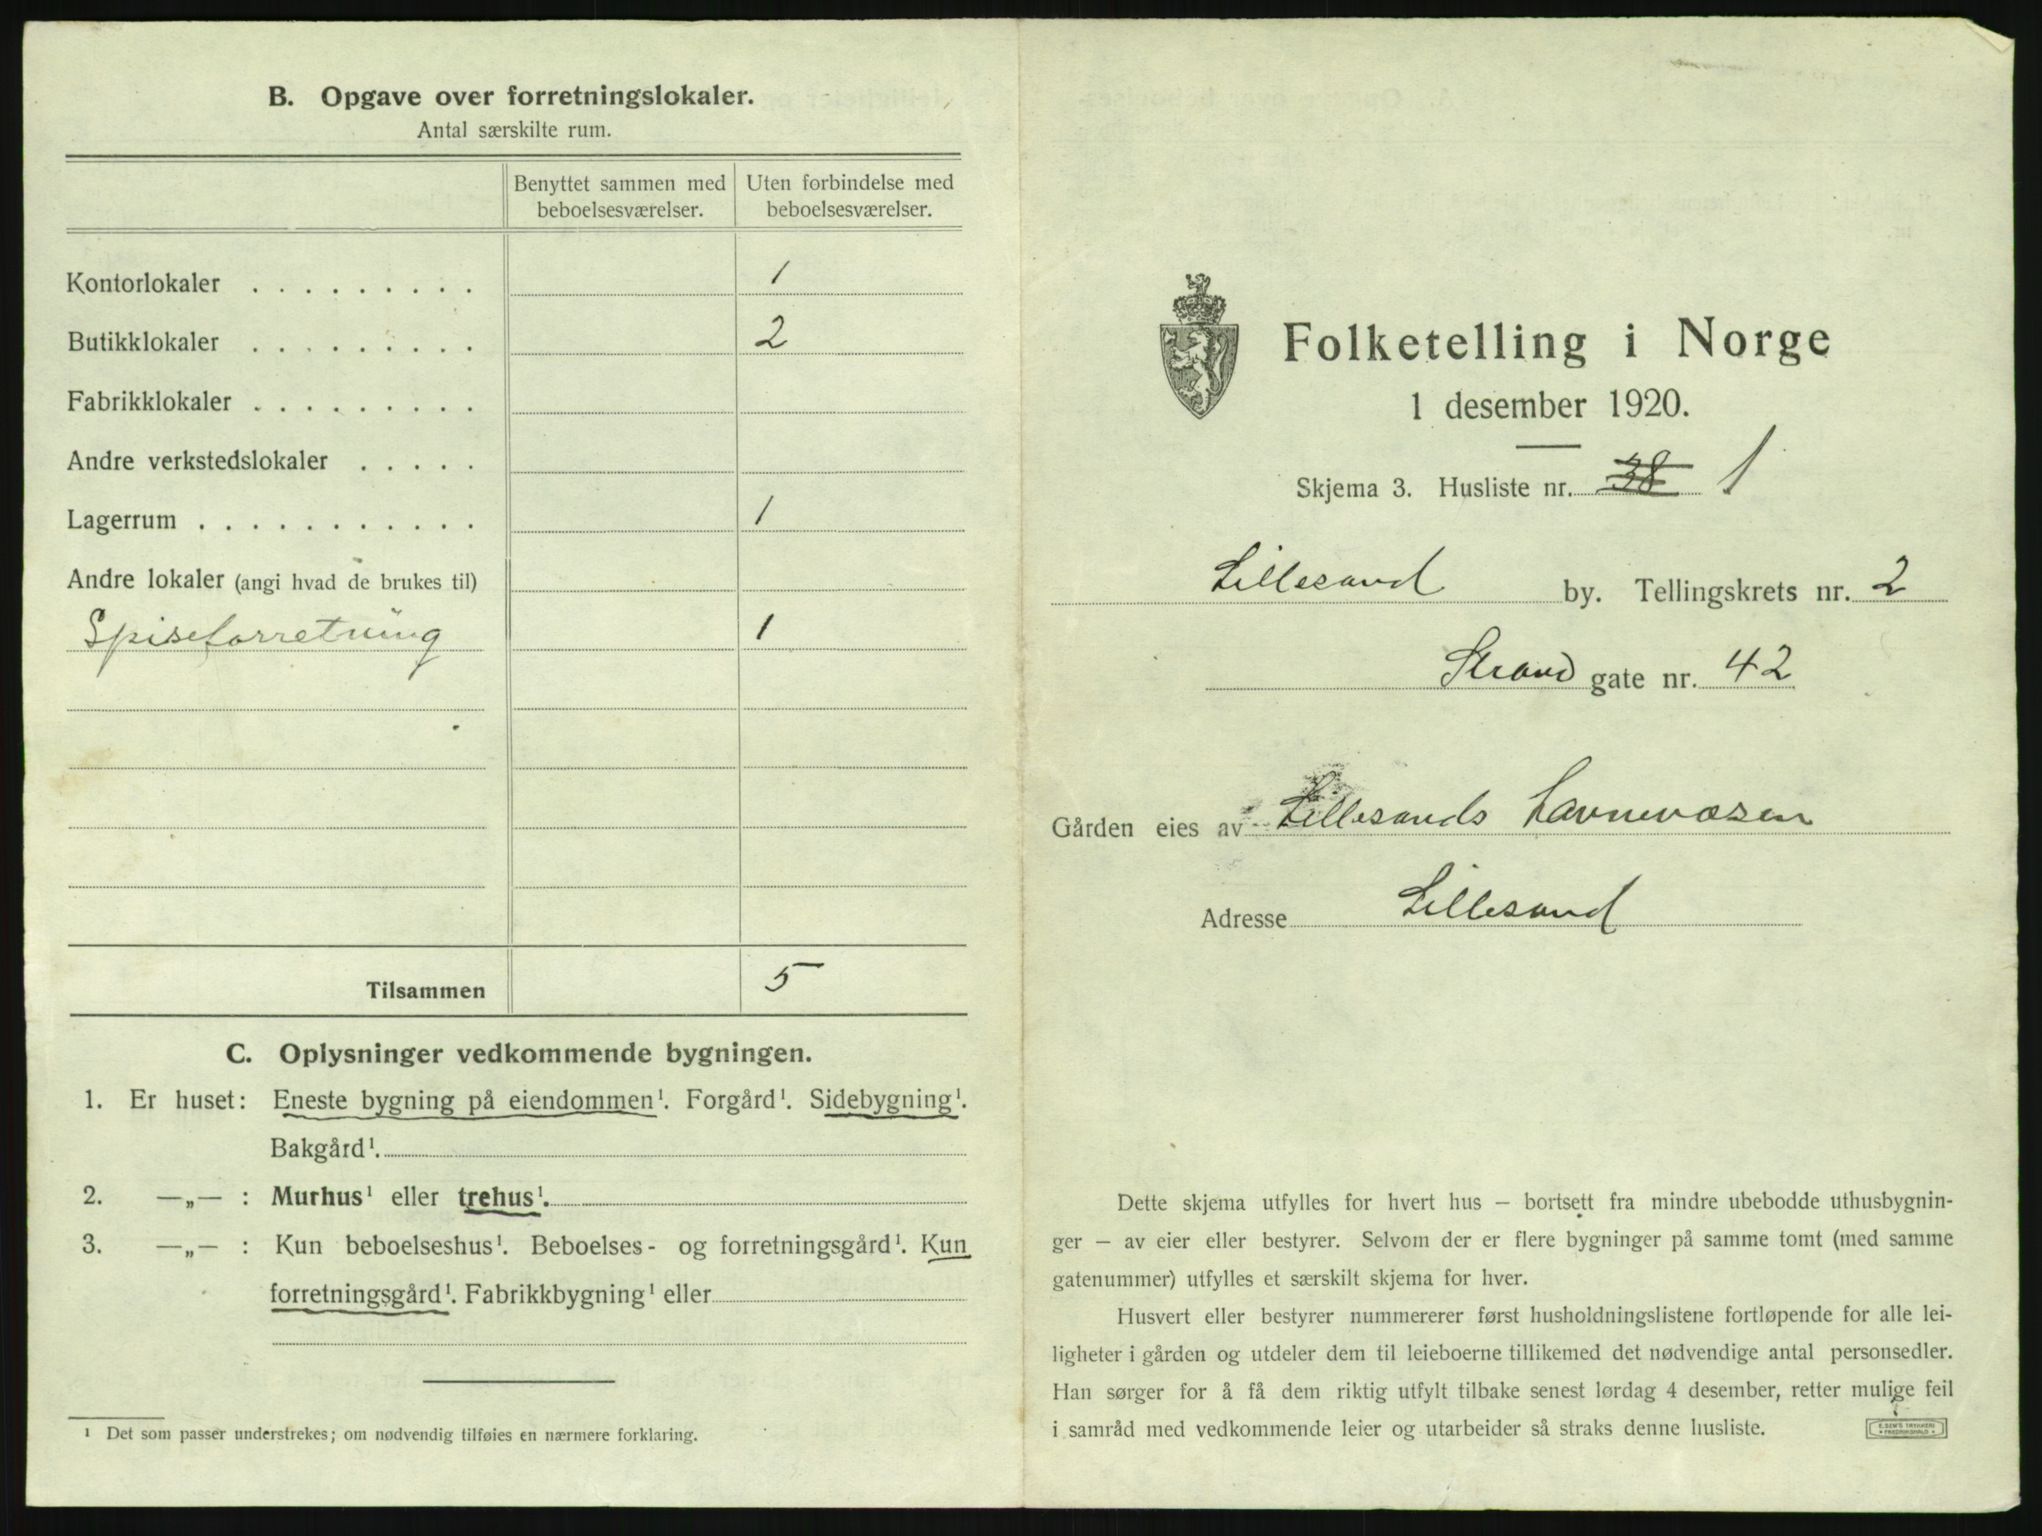 B. Opgave over forretningslokaler.
Antal særskilte rum.
Benyttet sammen med beboelsesværelser.
Uten forbindelse med beboelsesværelser.
Kontorlokaler . . . . . . . . . 1
Butikklokaler . . . . . . . . . 2
Fabrikklokaler . . . . . . . . .
Andre verkstedslokaler . . . . .
Lagerrum . . . . . . . . . . . . 1
Andre lokaler (angi hvad de brukes til)
Spiseforretning 1
Tilsammen 5
C. Oplysninger vedkommende bygningen.
1. Er huset: Eneste bygning på eiendommen¹. Forgård¹. Sidebygning¹.
Bakgård¹.
2. —„— : Murhus¹ eller trehus¹.
3. —„— : Kun beboelseshus¹. Beboelses- og forretningsgård¹. Kun
forretningsgård¹. Fabrikkbygning¹ eller
¹ Det som passer understrekes; om nødvendig tilføies en nærmere forklaring.
Folketelling i Norge
1 desember 1920.
Skjema 3. Husliste nr. 38 1
Lillesand by. Tellingskrets nr. 2
Strand gate nr. 42
Gården eies av Lillesands Havnevæsen
Adresse Lillesand
Dette skjema utfylles for hvert hus – bortsett fra mindre ubebodde uthusbygnin-
ger – av eier eller bestyrer. Selvom der er flere bygninger på samme tomt (med samme
gatenummer) utfylles et særskilt skjema for hver.
Husvert eller bestyrer nummererer først husholdningslistene fortløpende for alle lei-
ligheter i gården og utdeler dem til leieboerne tillikemed det nødvendige antal personsedler.
Han sørger for å få dem riktig utfylt tilbake senest lørdag 4 desember, retter mulige feil
i samråd med vedkommende leier og utarbeider så straks denne husliste.
E. SEM'S TRYKKERI
FREDRIKSHALD